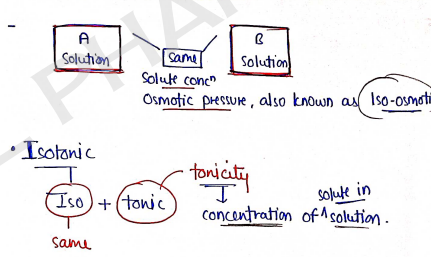 - A Solution same B Solution
Solute concⁿ
Osmotic pressure, also known as Iso-osmoti
• Isotonic
tonicity
Iso + tonic
solute in
concentration of ^ solution.
same